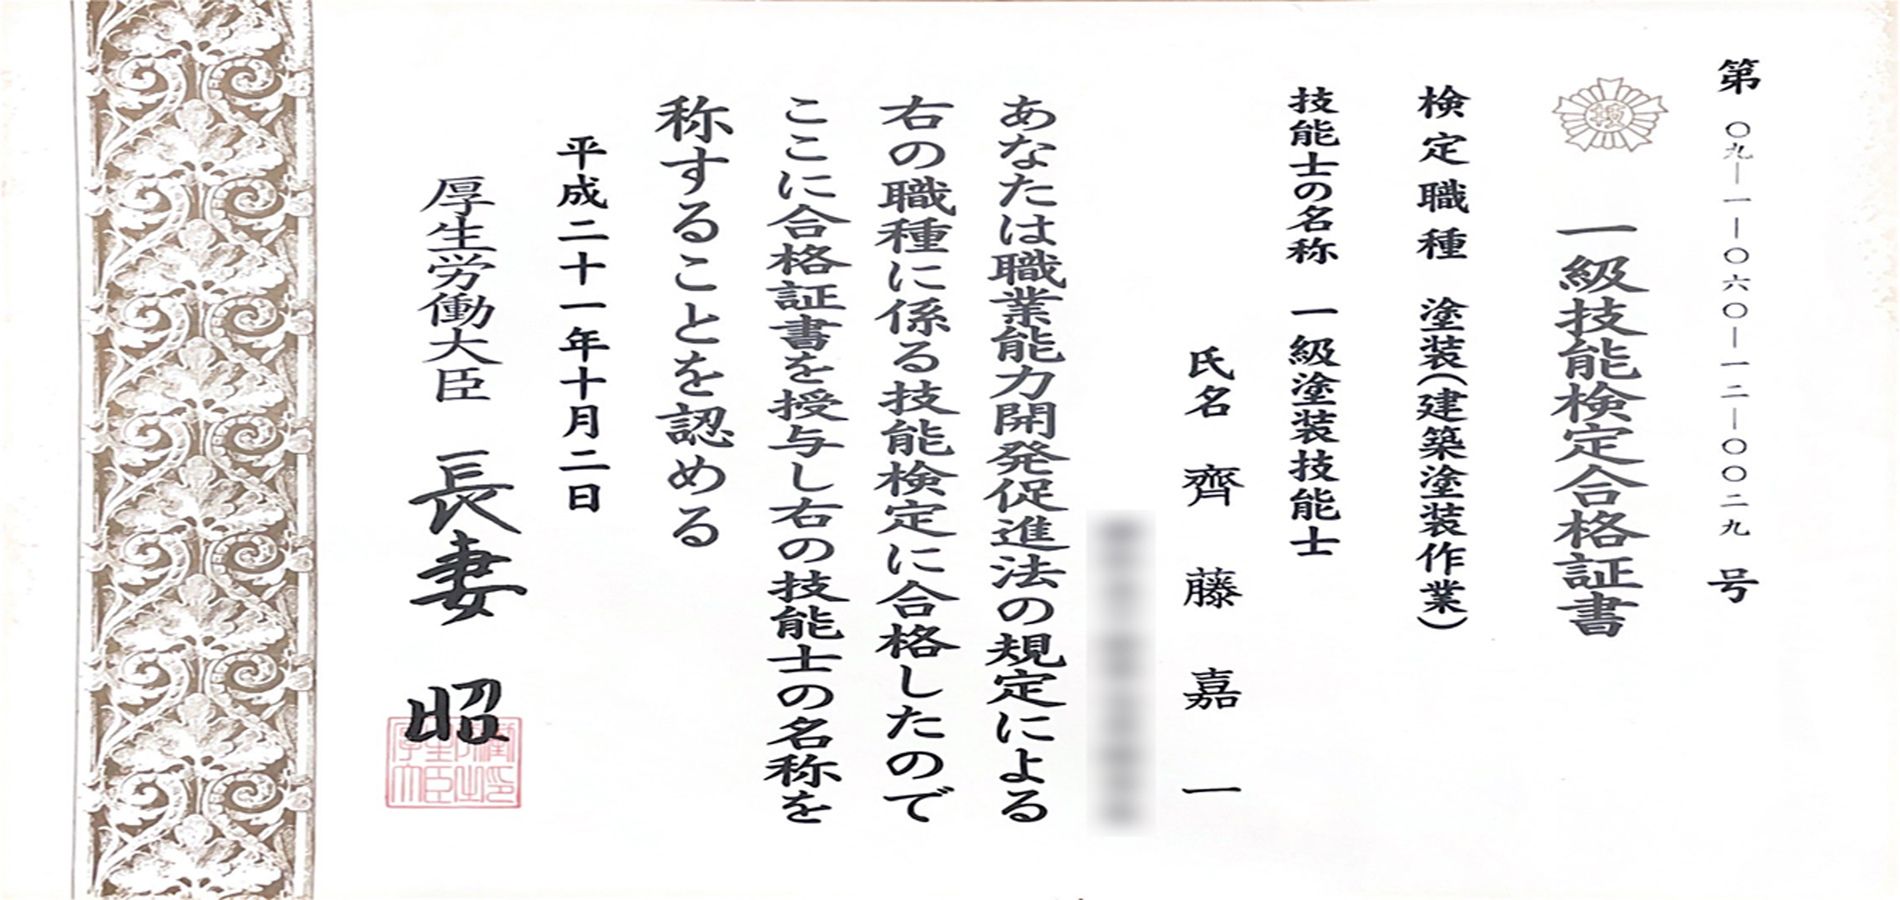 第〇九―一―〇六〇―一二―〇〇二九号
技
一級技能検定合格証書
検定職種　塗装(建築塗装作業)
技能士の名称　一級塗装技能士
氏名　齊藤嘉一
あなたは職業能力開発促進法の規定による
右の職種に係る技能検定に合格したので
ここに合格証書を授与し右の技能士の名称を
称することを認める
平成二十一年十月二日
厚生労働大臣　長妻昭